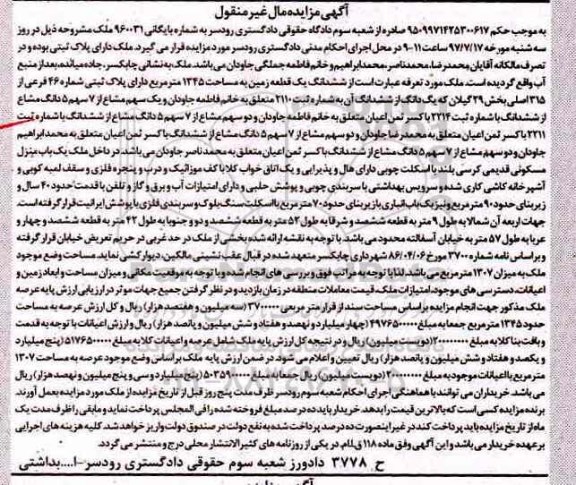 آگهی مزایده مال غیر منقول
به موجب حکم ۹۵۰۹۹۷۱۴۲۵۳۰۰۶۱۷ صادره از شعبه سوم دادگاه حقوقی دادگستری رودسر به شماره بایگانی ۹۶۰۰۳۱ ملک مشروحه ذیل در روز
سه شنبه مورخه ۹۷/۷/۱۷ ساعت ۱۱-۹ در محل اجرای احکام مدنی دادگستری رودسر مورد مزایده قرار می گیرد. ملک دارای پلاک ثبتی بوده و در
تصرف مالکانه آقایان محمدرضا، محمدناصر، محمدابراهیم و خانم فاطمه جملگی جاودان می باشد. ملک به نشانی چابکسر، جاده میانده، بعد از منبع
آب واقع گردیده است. ملک مورد تعرفه عبارت است از ششدانگ یک قطعه زمین به مساحت ۱۳۴۵ متر مربع دارای پلاک ثبتی شماره ۴۶ فرعی از
۳۱۵ اصلی بخش ۲۹ گیلان که یک دانگ از ششدانگ آن به شماره ثبت ۲۱۱۰ متعلق به خانم فاطمه جاودان و یک سهم مشاع از ۷ سهم ۵ دانگ مشاع
از ششدانگ با شماره ثبت ۲۲۱۴ با کسر ثمن اعیان متعلق به خانم فاطمه جاودان و دو سهم مشاع از ۷ سهم ۵ دانگ مشاع از ششدانگ با شماره ثبت
۲۲۱۱ با کسر ثمن اعیان متعلق به محمدرضا جاودان و دو سهم مشاع از ۷ سهم ۵ دانگ مشاع از ششدانگ با کسر ثمن اعیان متعلق به محمدابراهیم
جاودان و دو سهم مشاع از ۷ سهم ۵ دانگ مشاع از ششدانگ با کسر ثمن اعیان متعلق به محمد ناصر جاودان می باشد. در داخل ملک یک باب منزل
مسکونی قدیمی کرسی بلند با اسکلت چوبی دارای هال و پذیرایی و یک اتاق خواب کلا با کف موزائیک و درب و پنجره فلزی و سقف لمبه کوبی و
آشپزخانه کاشی کاری شده و سرویس بهداشتی با سربندی چوبی و پوشش حلبی و دارای امتیازات آب و برق و گاز و تلفن با قدمت حدود ۴۰ سال و
زیربنای حدود ۹۰ متر مربع و نیز یک باب انباری باز بر بنای حدود ۷۰ متر مربع با اسکلت سنگ بلوک و سربندی فلزی با پوشش ایرانیت قرار گرفته است.
جهات اربعه آن شمالا به طول ۹ متر به قطعه ششصد و شرقا به طول ۵۲ متر به قطعه ششصد و دو و جنوبا به طول ۴۲ متر به قطعه ششصد و چهار و
غربا به طول ۵۷ متر به خیابان آسفالته محدود می باشد. با توجه به نقشه ارائه شده بخشی از ملک در حد غربی در حریم تعریض خیابان قرار گرفته
و براساس نامه شماره ۳۷۰۰ مورخ ۸۶/۰۴/۰۶ شهرداری چابکسر متعهد شده در قبال عقب نشینی مالکین، دیوارکشی نماید. مساحت وضع موجود
ملک به میزان ۱۳۰۷ متر مربع می باشد. لذا با توجه به مراتب فوق و بررسی های انجام شده و با توجه به موقعیت مکانی و میزان مساحت و ابعاد زمین و
اعیانات، دسترسی های موجود، امتیازات ملک، قیمت معاملات منطقه در زمان بازدید و در نظر گرفتن جمیع جهات موثر در ارزیابی ارزش پایه عرصه
ملک مذکور جهت انجام مزایده بر اساس مساحت سند از قرار متر مربعی ۳۷۰۰۰۰۰ (سه میلیون و هفتصد هزار) ریال و کل ارزش عرصه به مساحت
حدود ۱۳۴۵ متر مربع جمعا به مبلغ ۴۹۷۶۵۰۰۰۰۰ (چهار میلیارد و نهصد و هفتاد و شش میلیون و پانصد هزار) ریال و ارزش اعیانات با توجه به قدمت
و بافت بنا کلا به مبلغ ۲۰۰۰۰۰۰۰۰ (دویست میلیون) ریال و در نتیجه کل ارزش پایه ملک شامل عرصه و اعیانات کلا به مبلغ ۵۱۷۶۵۰۰۰۰۰ (پنج میلیارد
و یکصد و هفتاد و شش میلیون و پانصد هزار) ریال تعیین و اعلام می شود. در ضمن ارزش پایه ملک براساس وضع موجود عرصه به مساحت ۱۳۰۷
متر مربع با اعیانات موجود به مبلغ ۲۰۰۰۰۰۰۰۰ (دویست میلیون) ریال جمعا به مبلغ ۵۰۳۵۹۰۰۰۰۰ (پنج میلیارد و سی و پنج میلیون و نهصد هزار) ریال
می باشد. خریداران می توانند با هماهنگی اجرای احکام شعبه سوم رودسر ظرف مدت پنج روز قبل از تاریخ مزایده از ملک مورد مزایده بعمل آورند.
برنده مزایده کسی است که بالاترین قیمت را بدهد. خریدار باید ده درصد مبلغ فروخته شده را فی المجلس پرداخت نماید و مابقی را ظرف مدت یک
ماه از تاریخ مزایده باید پرداخت کند در غیر اینصورت ده درصد پرداخت شده به نفع دولت در صندوق دولت واریز خواهد شد. کلیه هزینه های اجرایی
بر عهده خریدار می باشد و این آگهی وفق ماده ۱۱۸ ق.ا.م. در یکی از روزنامه های کثیرالانتشار محلی درج و منتشر می گردد.
ح ۳۷۷۸ دادورز شعبه سوم حقوقی دادگستری رودسر-ا....بداشتی